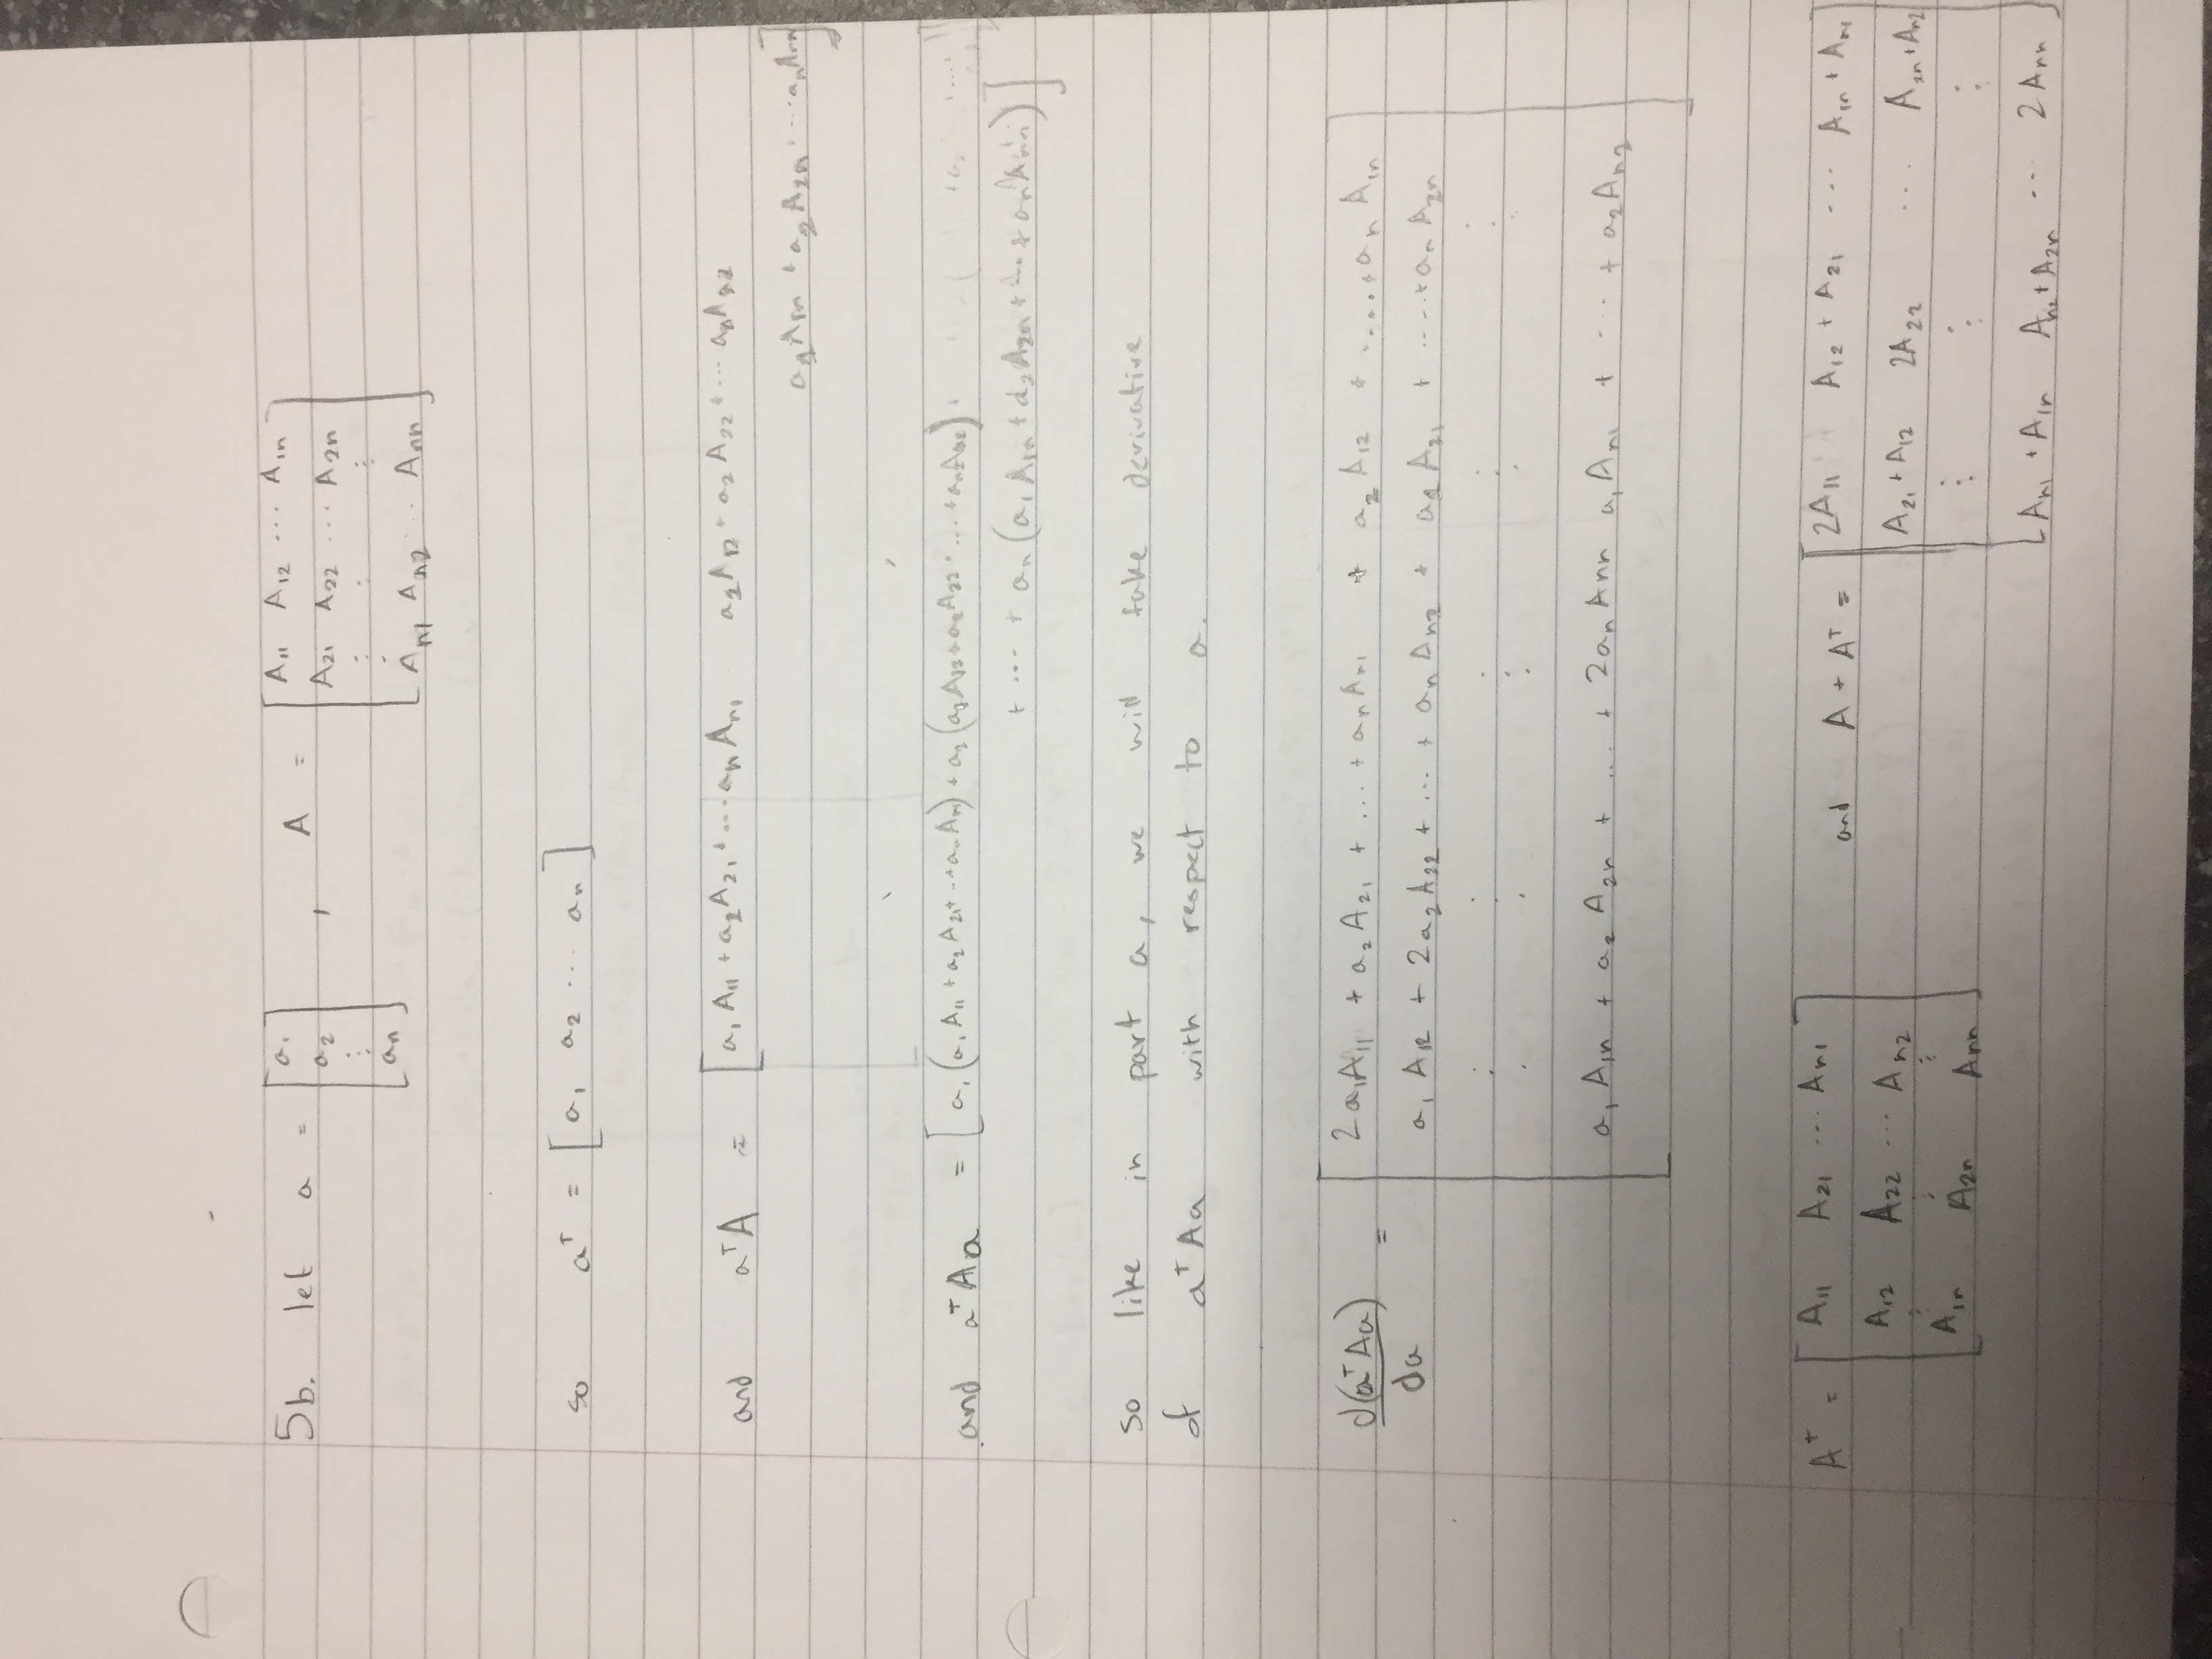 5b. let a = [a₁ a₂ ⋮ aₙ] , A = [A₁₁ A₁₂ ⋯ A₁ₙ
A₂₁ A₂₂ ⋯ A₂ₙ
⋮ ⋮ ⋮
Aₙ₁ Aₙ₂ ⋯ Aₙₙ]
so aᵀ = [a₁ a₂ ⋯ aₙ]
and aᵀA = [a₁A₁₁ + a₂A₂₁ + ⋯ aₙAₙ₁ a₁A₁₂ + a₂A₂₂ + ⋯ aₙAₙ₂
a₁A₁ₙ + a₂A₂ₙ + ⋯ aₙAₙₙ]
and aᵀAa = [a₁(a₁A₁₁ + a₂A₂₁ + ⋯ + aₙAₙ₁) + a₂(a₁A₁₂ + a₂A₂₂ + ⋯ + aₙAₙ₂)
+ ⋯ + aₙ(a₁A₁ₙ + a₂A₂ₙ + ⋯ + aₙAₙₙ)]
so like in part a, we will take derivative
of aᵀAa with respect to a.
d(aᵀAa)/da = [2a₁A₁₁ + a₂A₂₁ + ... + aₙAₙ₁ + a₂A₁₂ + ..... + aₙA₁ₙ
a₁A₁₂ + 2a₂A₂₂ + ... + aₙAₙ₂ + a₁A₂₁ + ..... + aₙA₂ₙ
⋮ ⋮ ⋮ ⋮ ⋮
a₁A₁ₙ + a₂A₂ₙ + ... + 2aₙAₙₙ a₁Aₙ₁ + ⋯ + a₂Aₙ₂]
Aᵀ = [A₁₁ A₂₁ ⋯ Aₙ₁ and A + Aᵀ = [2A₁₁ A₁₂ + A₂₁ ⋯ A₁ₙ + Aₙ₁
A₁₂ A₂₂ ⋯ Aₙ₂ A₂₁ + A₁₂ 2A₂₂ ⋯ A₂ₙ + Aₙ₂
⋮ ⋮ ⋮ ⋮ ⋮ ⋮
A₁ₙ A₂ₙ Aₙₙ] Aₙ₁ + A₁ₙ Aₙ₂ + A₂ₙ ⋯ 2Aₙₙ]